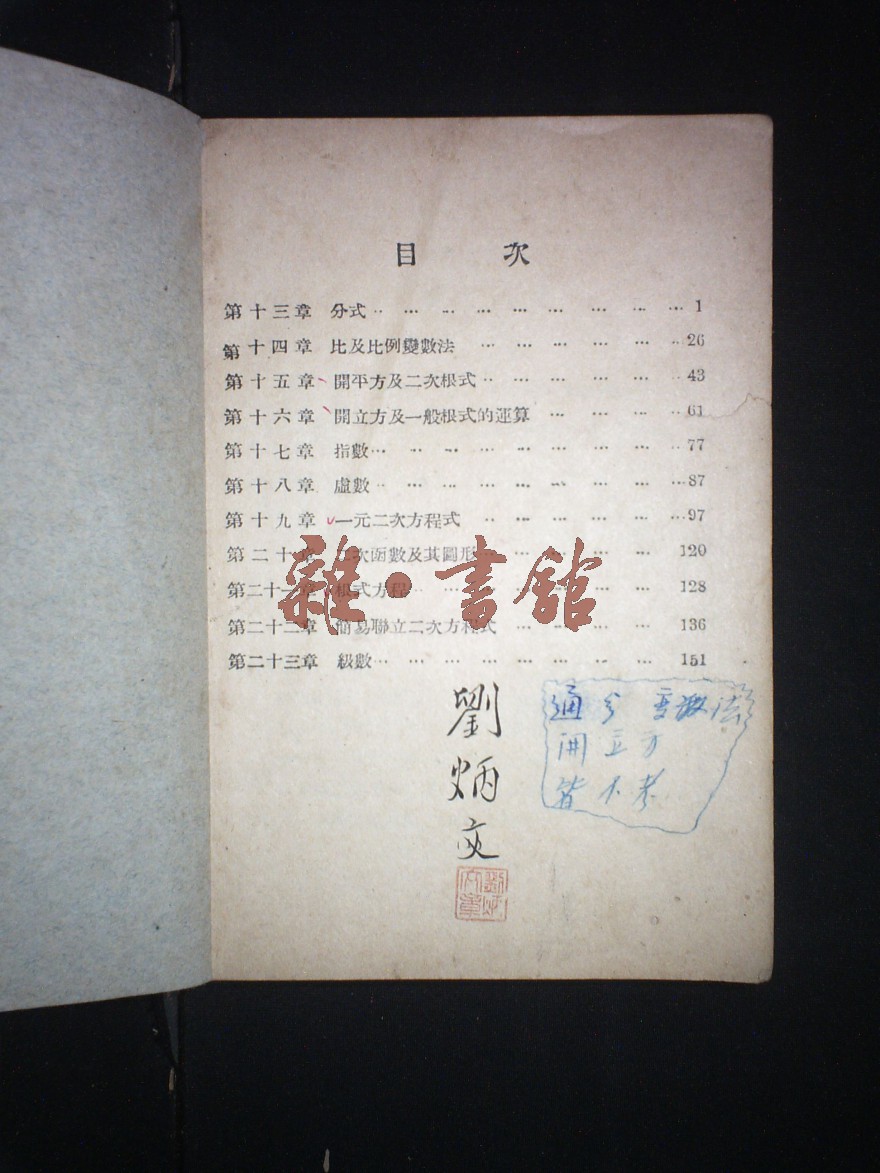 目 次
第十三章 分式 … … … … … … … … … 1
第十四章 比及比例變數法 … … … … … … 26
第十五章 開平方及二次根式 … … … … … … 43
第十六章 開立方及一般根式的運算 … … … … 61
第十七章 指數 … … … … … … … … … 77
第十八章 虛數 … … … … … … … … … 87
第十九章 一元二次方程式 … … … … … … 97
第二十章 二次函數及其圖形 … … … … … … 120
第二十一章 根式方程 … … … … … … … 128
第二十二章 簡易聯立二次方程式 … … … … 136
第二十三章 級數 … … … … … … … … … 151
雜·書館
劉炳文
通分 變數法
開立方
皆不考